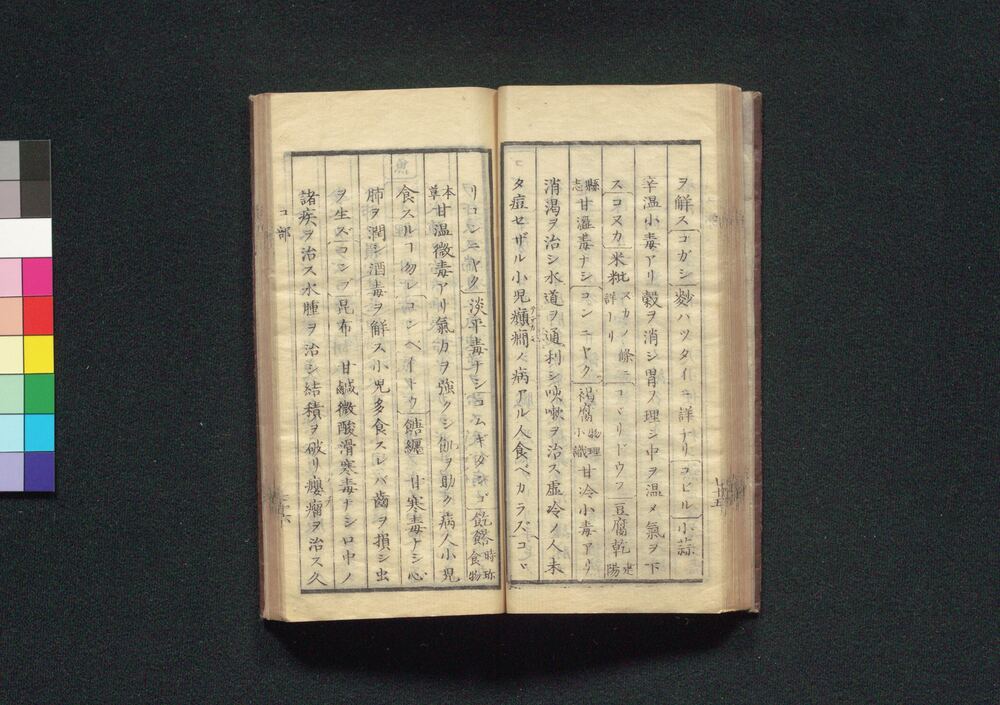 ヲ解ス コガシ 麨ハツタイニ詳ナリ コビル 小蒜
辛温小毒アリ穀ヲ消シ胃ヲ理シ中ヲ温メ氣ヲ下
ス コヌカ 米粃 スカノ條ニ詳ナリ コヾリドウフ 豆腐乾 建陽
縣志 甘温毒ナシ コンニヤク 蒟腐 物理小識 甘冷小毒アリ
消渇ヲ治シ水道ヲ通利シ咳嗽ヲ治ス虚冷ノ人未
タ痘セザル小児癲癇ノ病アル人食ベカラズ コヾ
リコンニヤク 淡平毒ナシ コムギダンゴ 飥饠 時珍食物
本草 甘温微毒アリ氣力ヲ強クシ飢ヲ助ク病人小児
食スルヿ勿レ コンペイトウ 糖纏 甘寒毒ナシ心
肺ヲ潤シ酒毒ヲ解ス小児多食スレバ齒ヲ損シ虫
ヲ生ズ コンブ 昆布 甘鹹微酸滑寒毒ナシ口中ノ
諸疾ヲ治ス水腫ヲ治シ結積ヲ破リ癭瘤ヲ治ス久
コ部